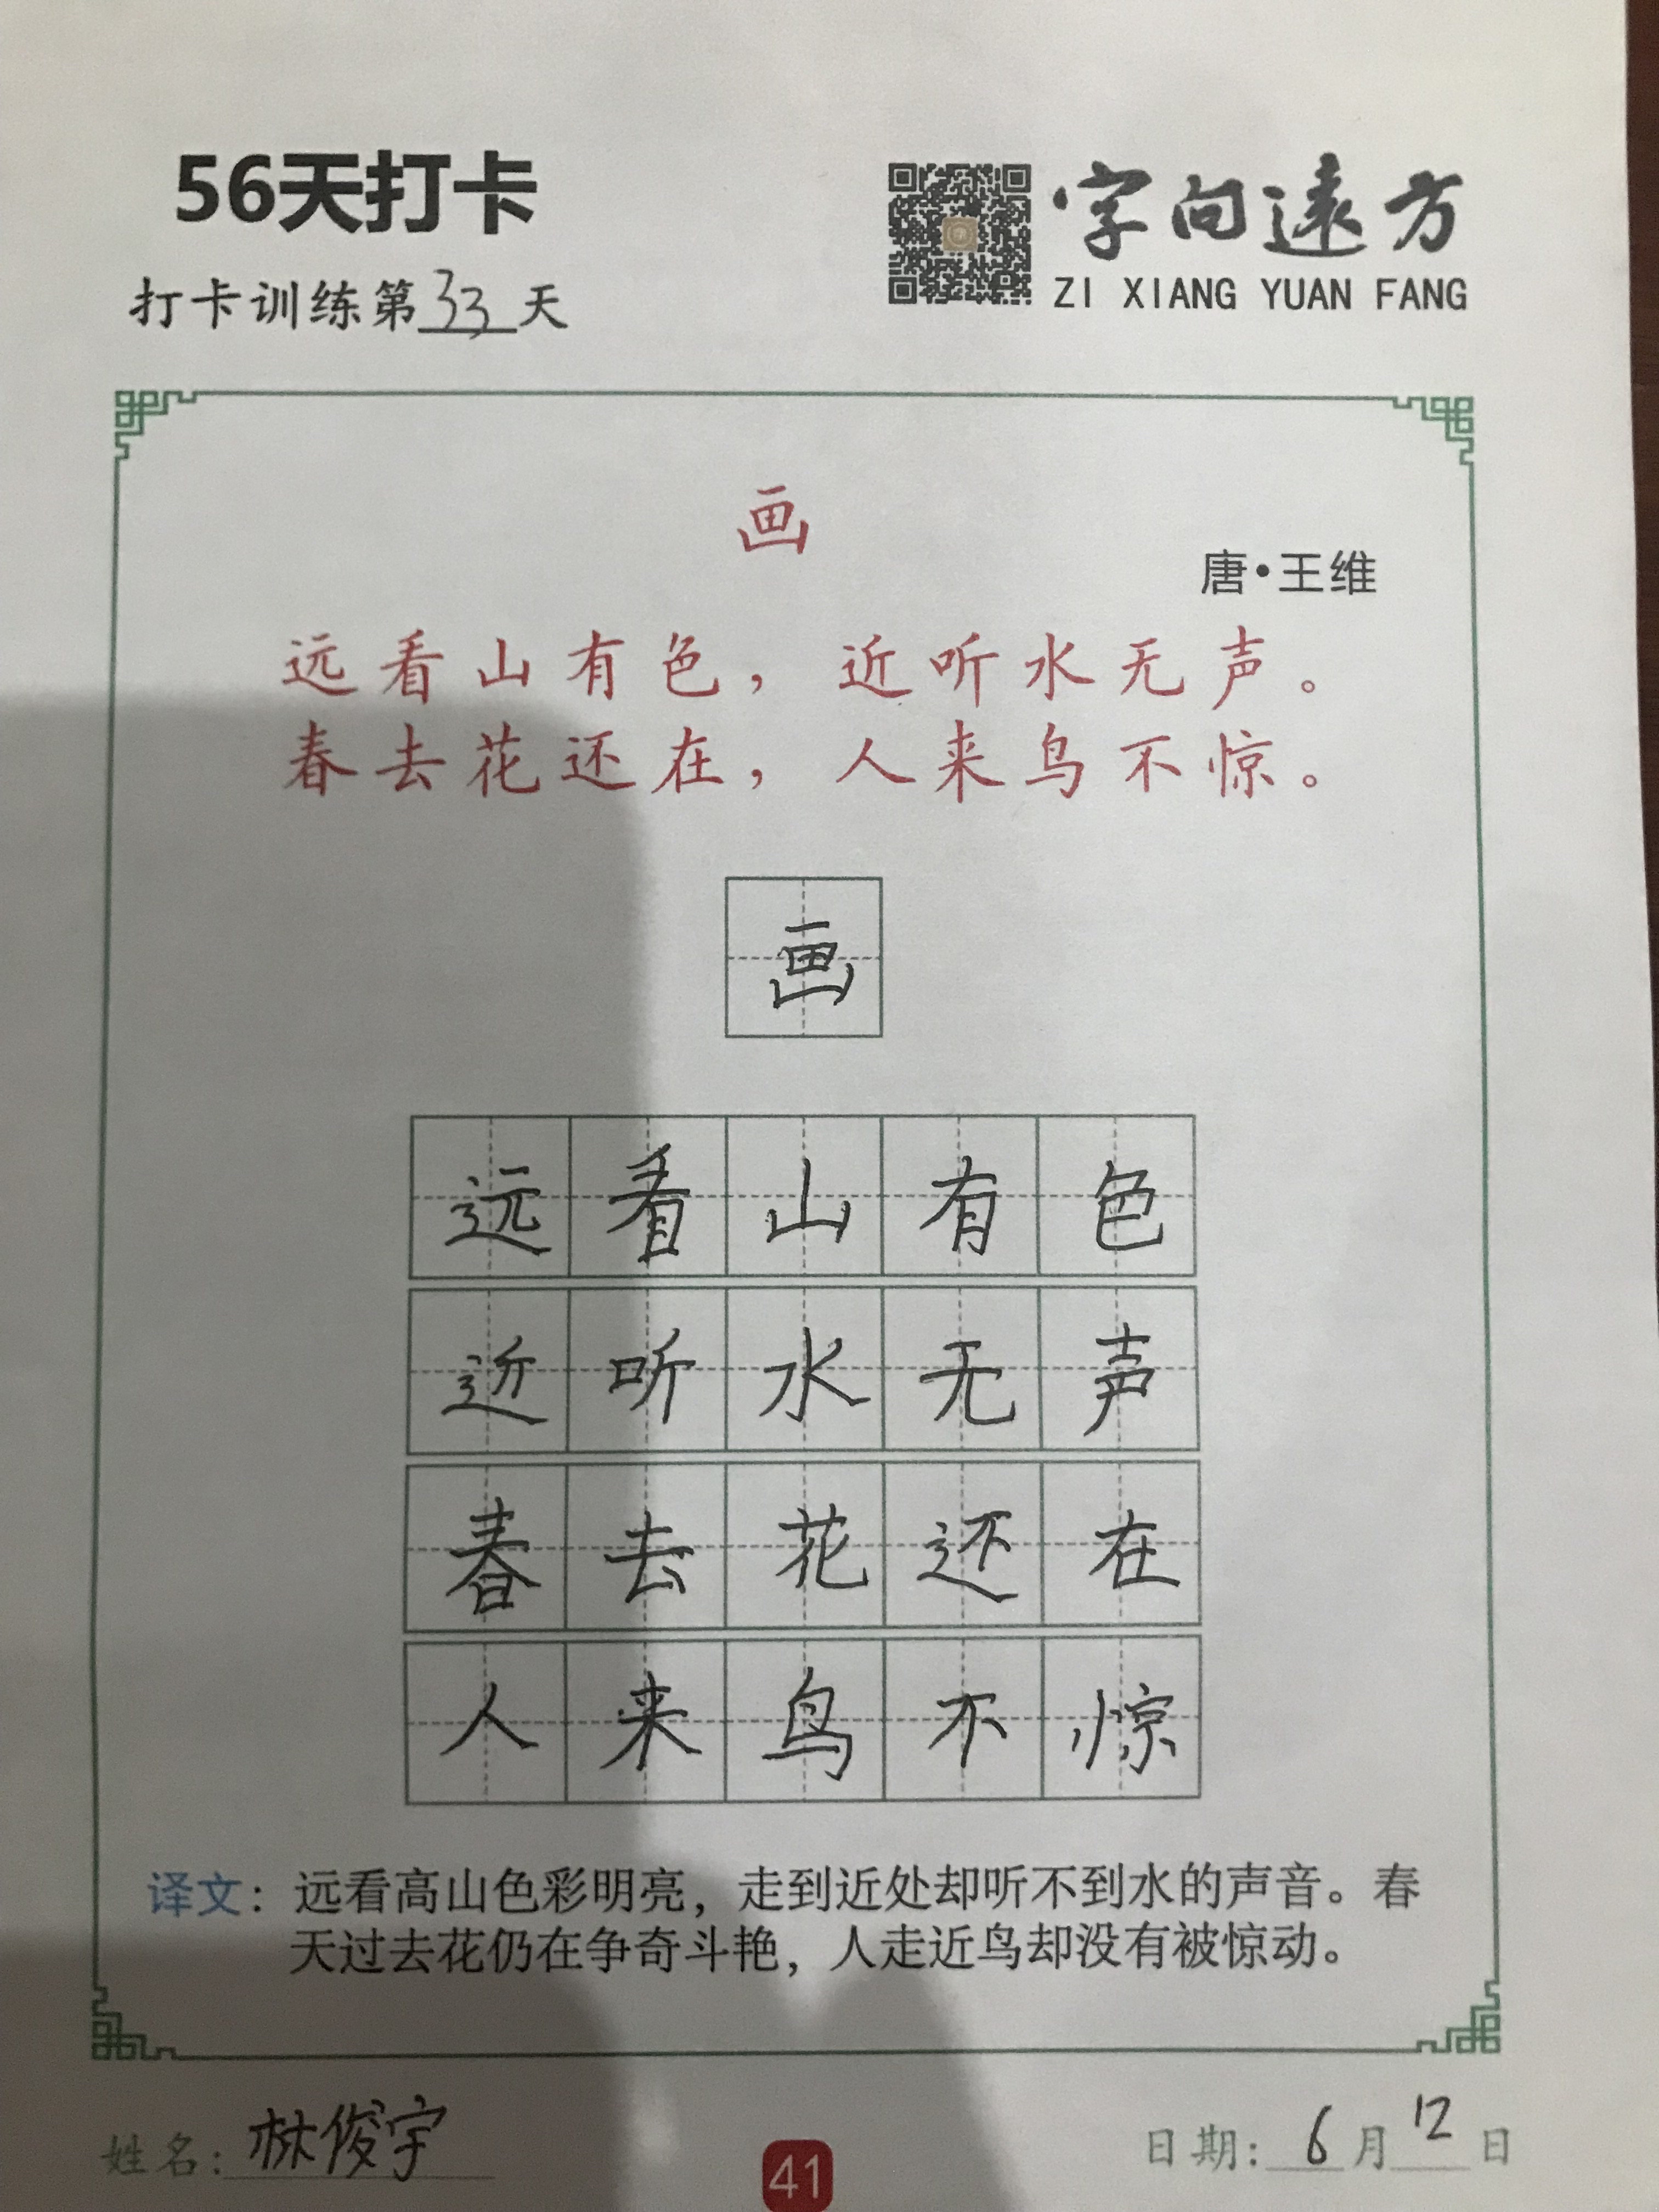 56天打卡
字向遠方
ZI XIANG YUAN FANG
打卡训练第33天
画
唐·王维
远看山有色，近听水无声。
春去花还在，人来鸟不惊。
画
远看山有色
近听水无声
春去花还在
人来鸟不惊
译文：远看高山色彩明亮，走到近处却听不到水的声音。春
天过去花仍在争奇斗艳，人走近鸟却没有被惊动。
姓名：林俊宇
41
日期：6月12日